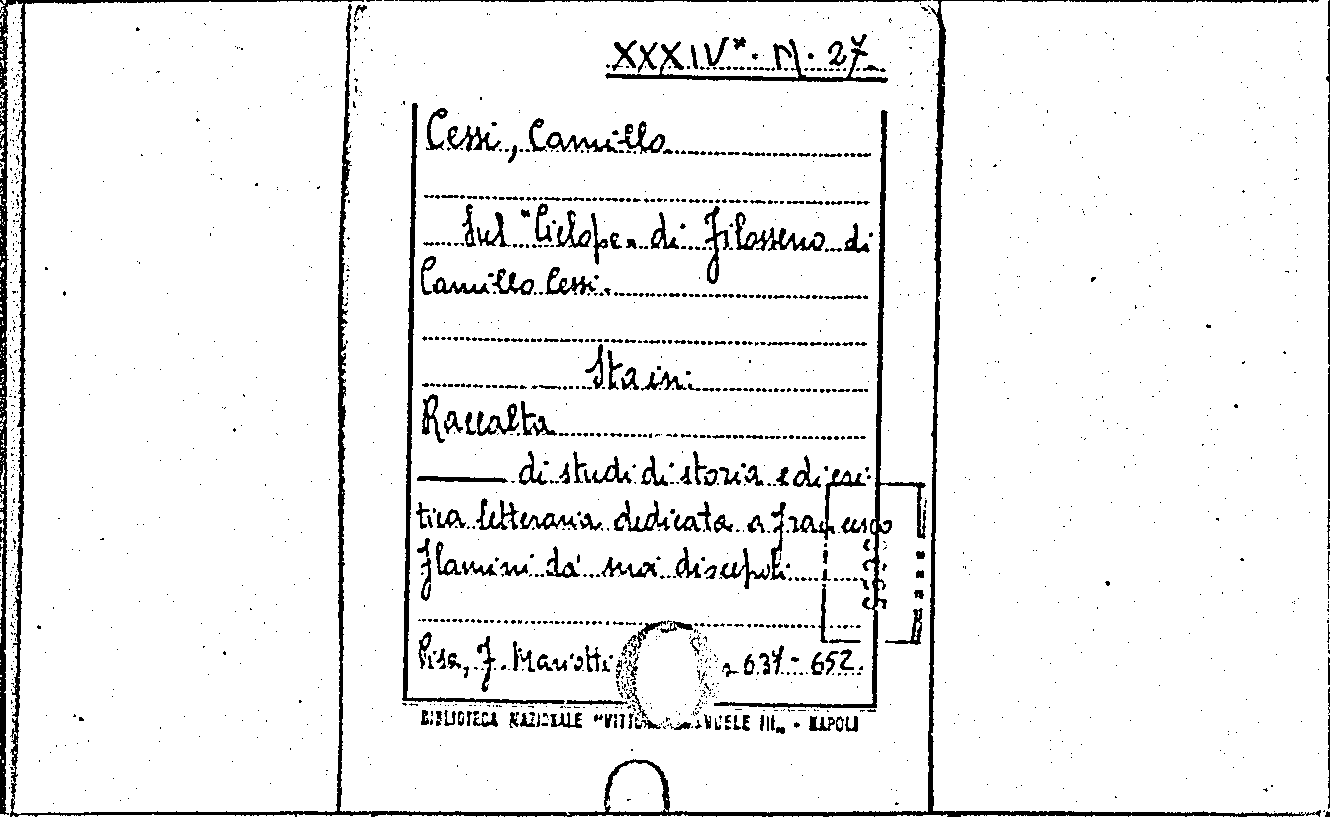 XXXIV*. N. 27.
Cessi, Camillo
Sul "Ciclope" di Filosseno di
Camillo Cessi.
Sta in:
Raccolta
di studi di storia e di cri-
tica letteraria dedicata a Francesco
Flamini da' suoi discepoli
Pisa, F. Mariotti 637-652.
BIBLIOTECA NAZIONALE "VITTORIO EMANUELE III" - NAPOLI